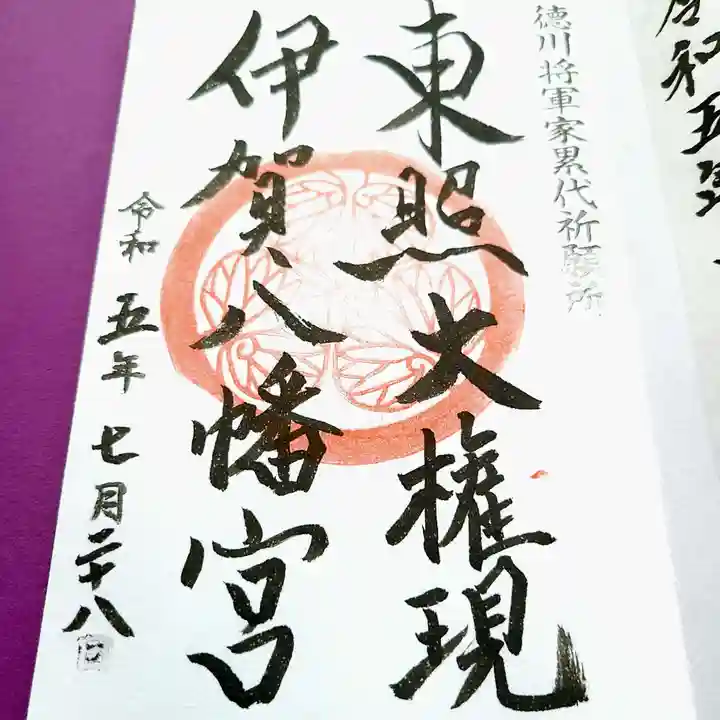 徳川将軍家累代祈願所
東照大権現
伊賀八幡宮
令和五年七月二十八日
令和五年